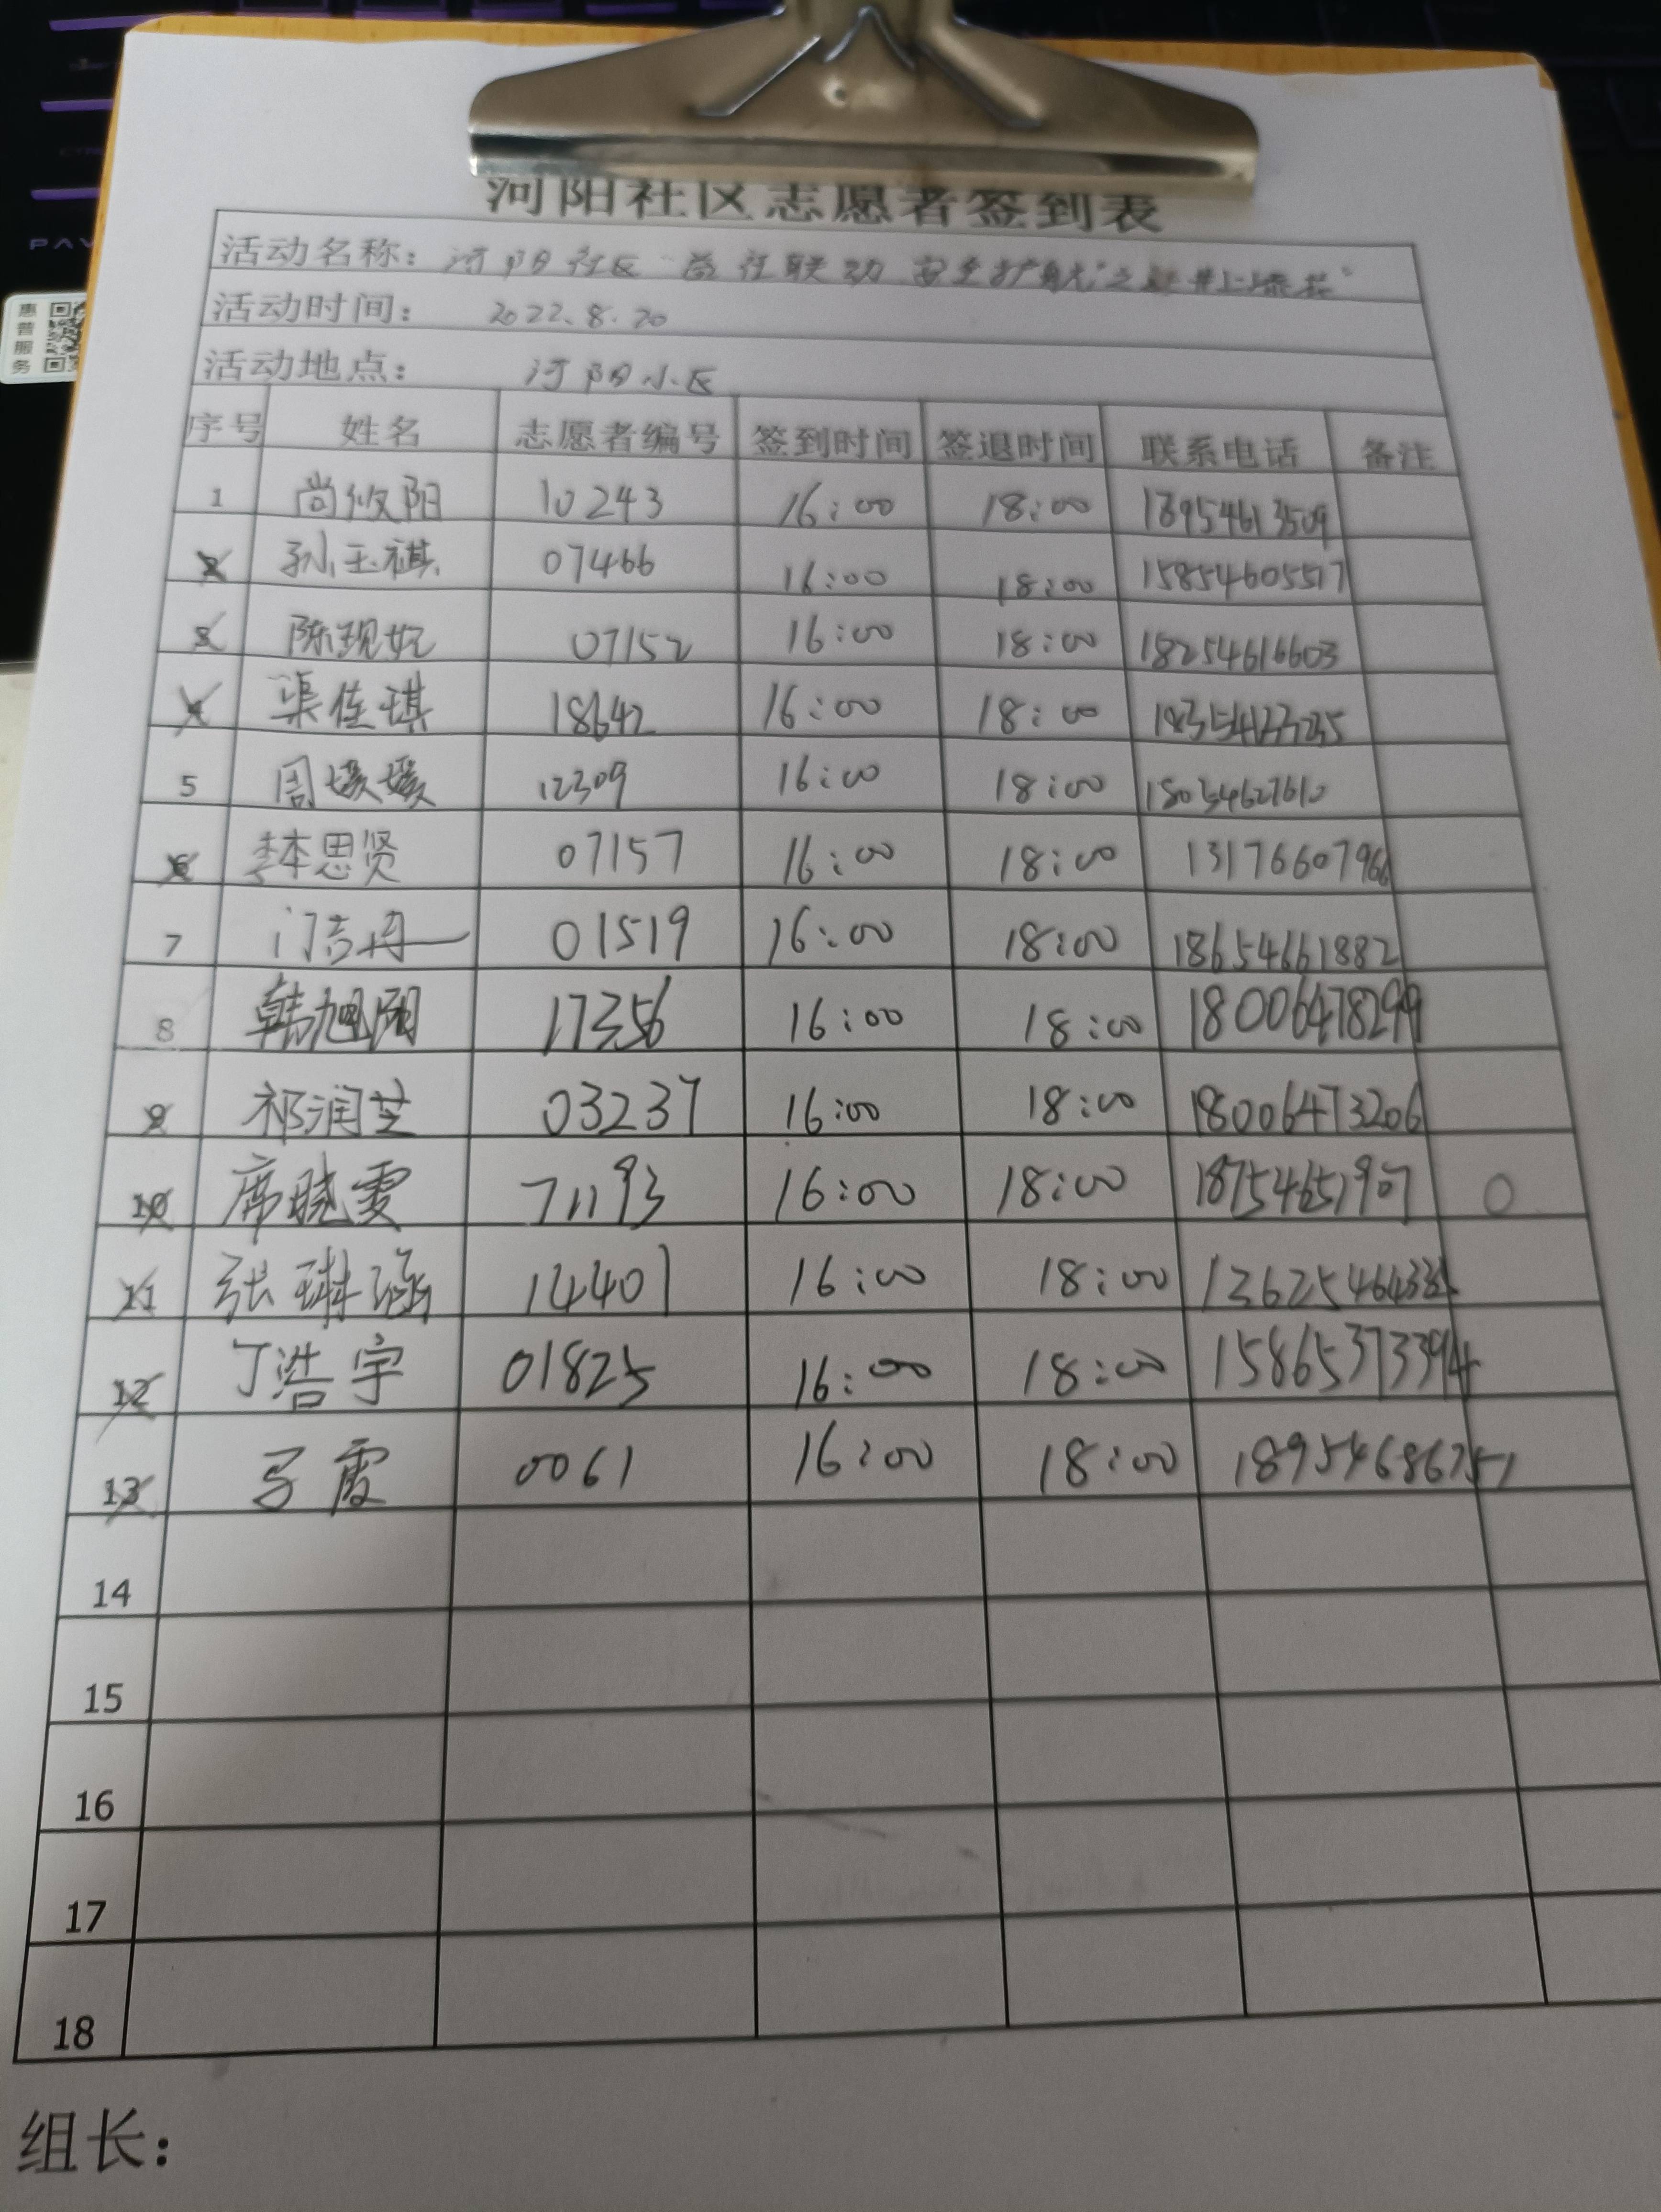 惠普服务
河阳社区志愿者签到表
活动名称：河阳社区"益社联动 安全扩航"之
活动时间： 2022.8.20
活动地点： 河阳小区
序号 姓名 志愿者编号 签到时间 签退时间 联系电话 备注
1 尚 阳 10243 16:00 18:00 18954613509
2 孙玉祺 07466 16:00 18:00 15854605517
3 陈现妃 07152 16:00 18:00 18254616603
4 渠佳琪 18642 16:00 18:00
5 周媛媛 12309 16:00 18:00
6 李本思贤 07157 16:00 18:00 13176607966
7 门吉冉 01519 16:00 18:00 18654661882
8 韩旭阳 17356 16:00 18:00 18006478299
9 祁润芝 03237 16:00 18:00 18006473206
10 席晓雯 71193 16:00 18:00 18754651907 0
11 张琳涵 14401 16:00 18:00
12 丁浩宇 01825 16:00 18:00 15865373394
13 马霞 0061 16:00 18:00 18954686751
14
15
16
17
18
组长：